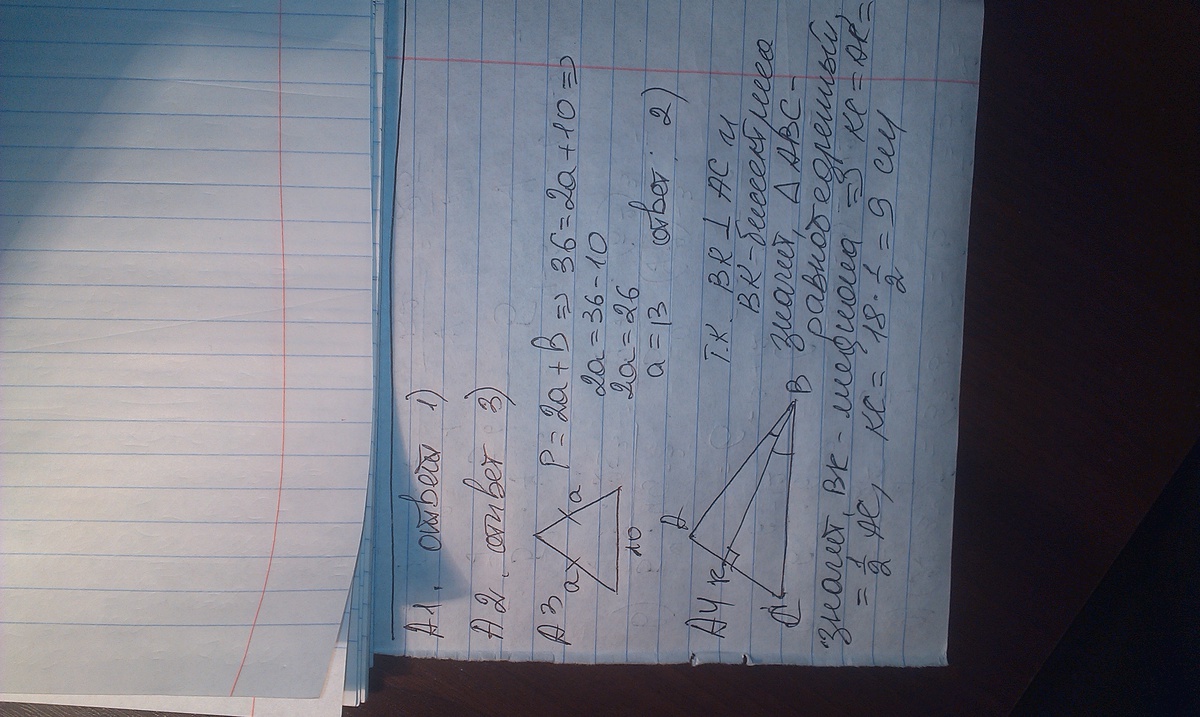 А1. ответ 1)
А2. ответ 3)
А3 a a 10 P=2a+B=>36=2a+10=>
2a=36-10
2a=26
a=13 ответ: 2)
А4 A K C B т.к. BK⊥AC и
BK-биссектриса
значит, ΔABC-
равнобедренный,
значит, BK-медиана => KC=AK=
=1/2 AC, KC=18·1/2=9 см